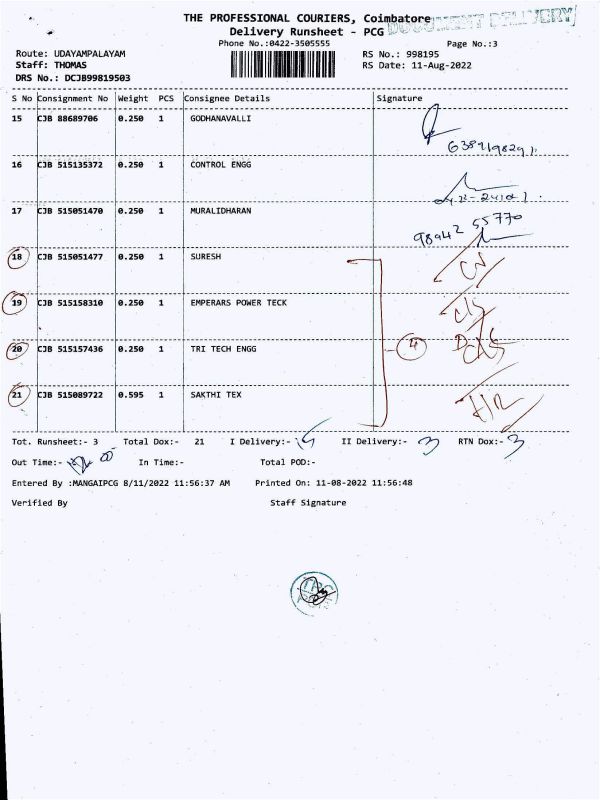 THE PROFESSIONAL COURIERS, Coimbatore
DOCUMENT DELIVERY
Delivery Runsheet - PCG
Phone No.:0422-3505555 Page No.:3
Route: UDAYAMPALAYAM RS No.: 998195
Staff: THOMAS RS Date: 11-Aug-2022
DRS No.: DCJB99819503
S No Consignment No Weight PCS Consignee Details Signature
15 CJB 88689706 0.250 1 GODHANAVALLI
16 CJB 515135372 0.250 1 CONTROL ENGG
17 CJB 515051470 0.250 1 MURALIDHARAN
98942 55770
18 CJB 515051477 0.250 1 SURESH
19 CJB 515158310 0.250 1 EMPERARS POWER TECK
20 CJB 515157436 0.250 1 TRI TECH ENGG
4
21 CJB 515089722 0.595 1 SAKTHI TEX
Tot. Runsheet:- 3 Total Dox:- 21 I Delivery:- 15 II Delivery:- 3 RTN Dox:- 3
Out Time:- In Time:- Total POD:-
Entered By :MANGAIPCG 8/11/2022 11:56:37 AM Printed On: 11-08-2022 11:56:48
Verified By Staff Signature